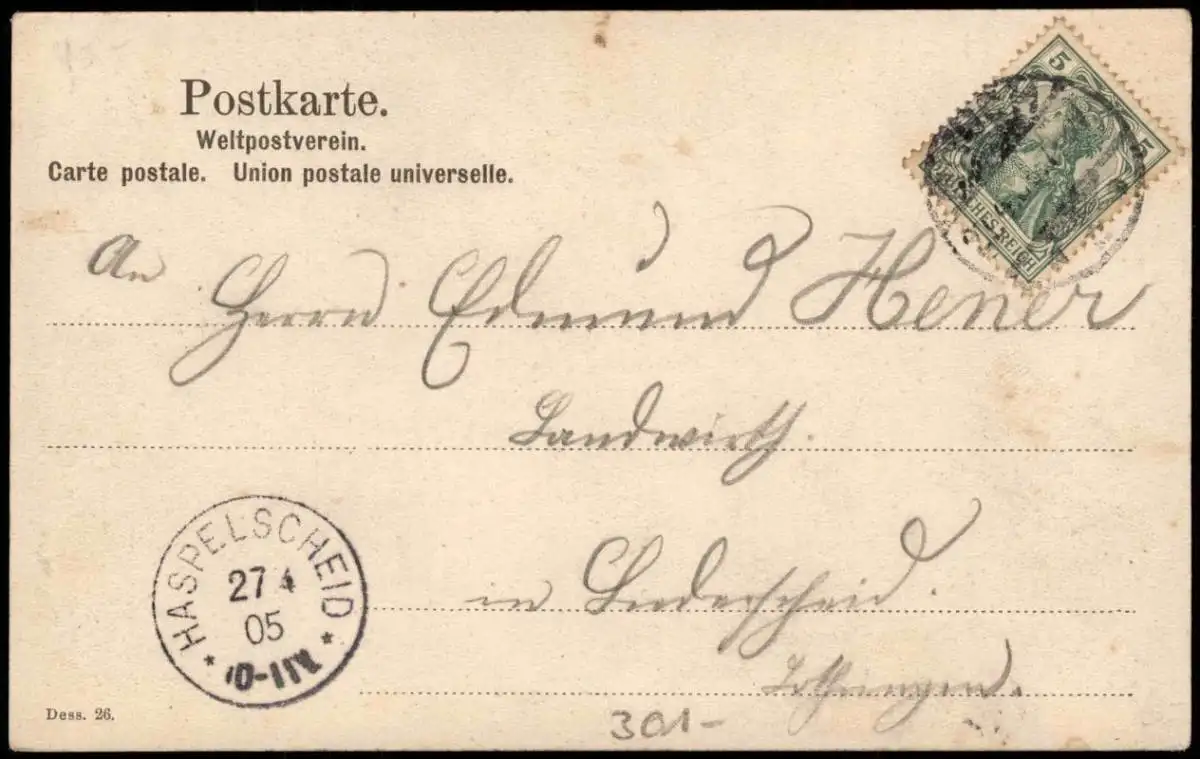 Postkarte.
Weltpostverein.
Carte postale. Union postale universelle.
5 5
DEUTSCHES REICH
An
Herrn Edmund Hener
Landwirth.
in Liederscheid.
Lothringen.
HASPELSCHEID
27 4
05
* 10-11V. *
Dess. 26.
301-